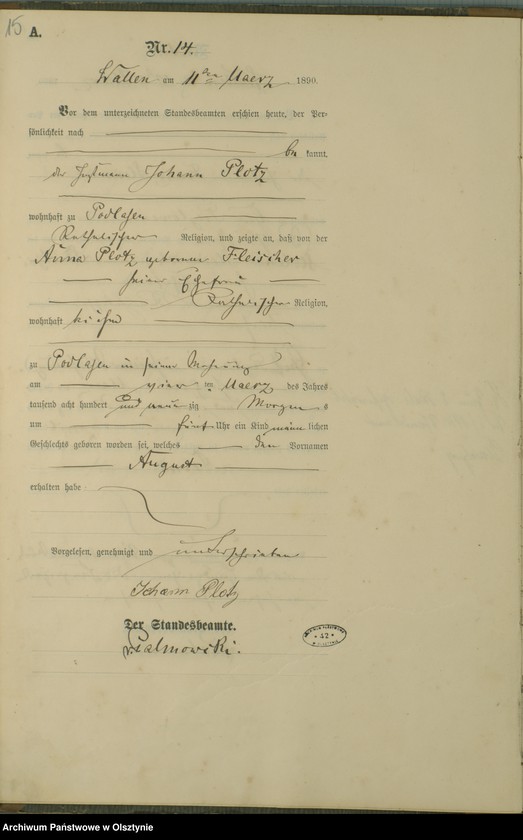 15
A.
Nr. 14.
Wallen am 11ten Maerz 1890.
Vor dem unterzeichneten Standesbeamten erschien heute, der Per-
sönlichkeit nach
be kannt,
der Johann Plotz
wohnhaft zu Podlasen
Katholischer Religion, und zeigte an, daß von der
Anna Plotz geborene Fleischer
seiner Ehefrau
Katholischer Religion,
wohnhaft bei ihm
zu Podlasen in seiner Wohnung
am vier ten Maerz des Jahres
tausend acht hundert und neun zig Morgen s
um fünf Uhr ein Kind männ lichen
Geschlechts geboren worden sei, welches den Vornamen
August
erhalten habe
Vorgelesen, genehmigt und unterschrieben
Johann Plotz
Der Standesbeamte.
Palmowski.
42
Archiwum Państwowe w Olsztynie